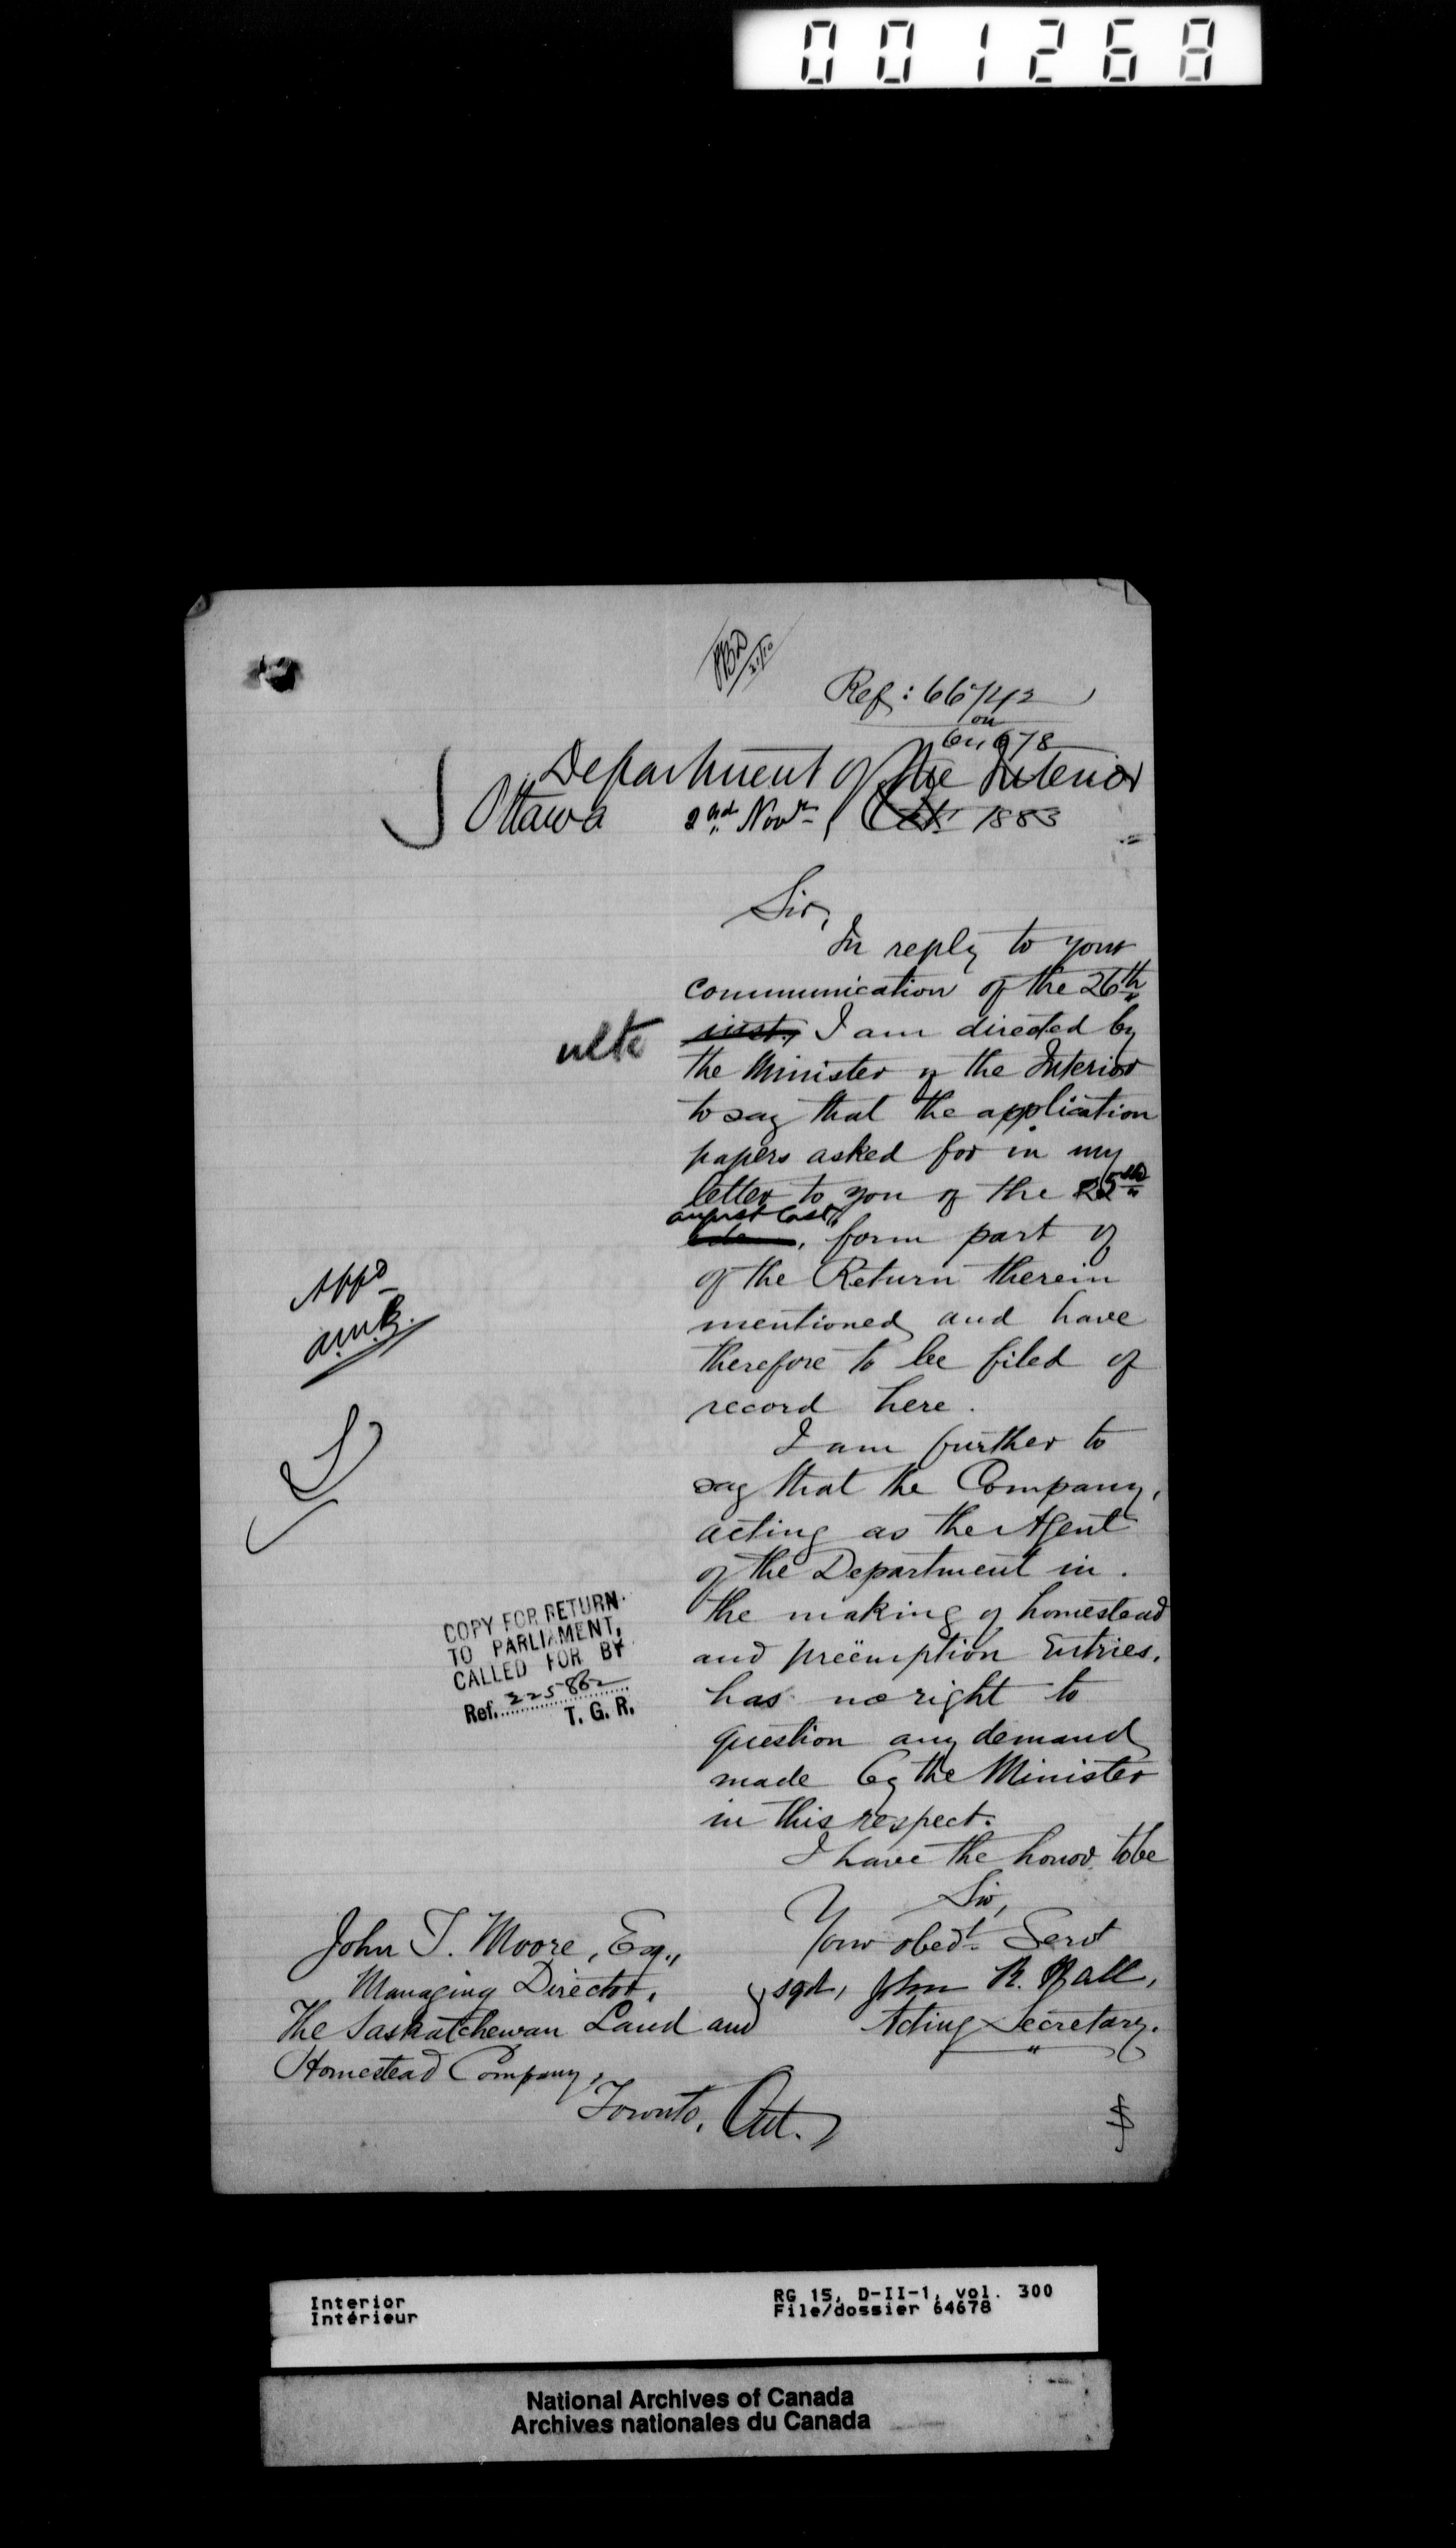 001268
Ref: 66742
on
64678
Department of the Interior
Ottawa 2nd Novr, Oct. 1883
Sir,
In reply to your
communication of the 26th
ulto inst., I am directed by
the Minister of the Interior
to say that the application
papers asked for in my
letter to you of the 25th
august last,
, form part of
of the Return therein
mentioned and have
therefore to be filed of
record here.
I am further to
say that the Company,
acting as the Agent
of the Department in
the making of homestead
and preëmption Entries,
has no right to
question any demand
made by the Minister
in this respect.
I have the honor to be
Sir,
Your obedt. Servt
sgd, John R. Hall,
Acting Secretary.
Appd
A.M.B.
COPY FOR RETURN
TO PARLIAMENT,
CALLED FOR BY
Ref. 225862
T. G. R.
John T. Moore, Esq.,
Managing Director,
The Saskatchewan Land and
Homestead Company,
Toronto, Ont.
Interior
Intérieur
RG 15, D-II-1, vol. 300
File/dossier 64678
National Archives of Canada
Archives nationales du Canada